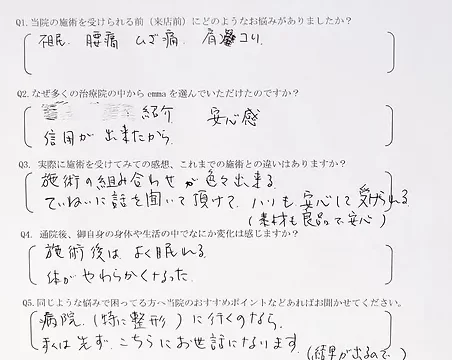 Q1.当院の施術を受けられる前(来店前)にどのようなお悩みがありましたか?
腰痛 ひざ痛 肩コリ
Q2.なぜ多くの治療院の中から emma を選んでいただけたのですか?
紹介 安心感
信用が出来たから
Q3. 実際に施術を受けてみての感想、これまでの施術との違いはありますか?
施術の組み合わせが色々出来る
ていねいに話を聞いて頂けて、いつも安心して受けられる
(素材も良品で安心)
Q4. 通院後、御自身の身体や生活の中でなにか変化は感じますか?
施術後は よく眠れる
体がやわらかくなった
Q5.同じような悩みで困ってる方へ当院のおすすめポイントなどあればお聞かせください。
病院(特に整形)に行くのなら
私は先ず、こちらにお世話になります
(結果が出るので)